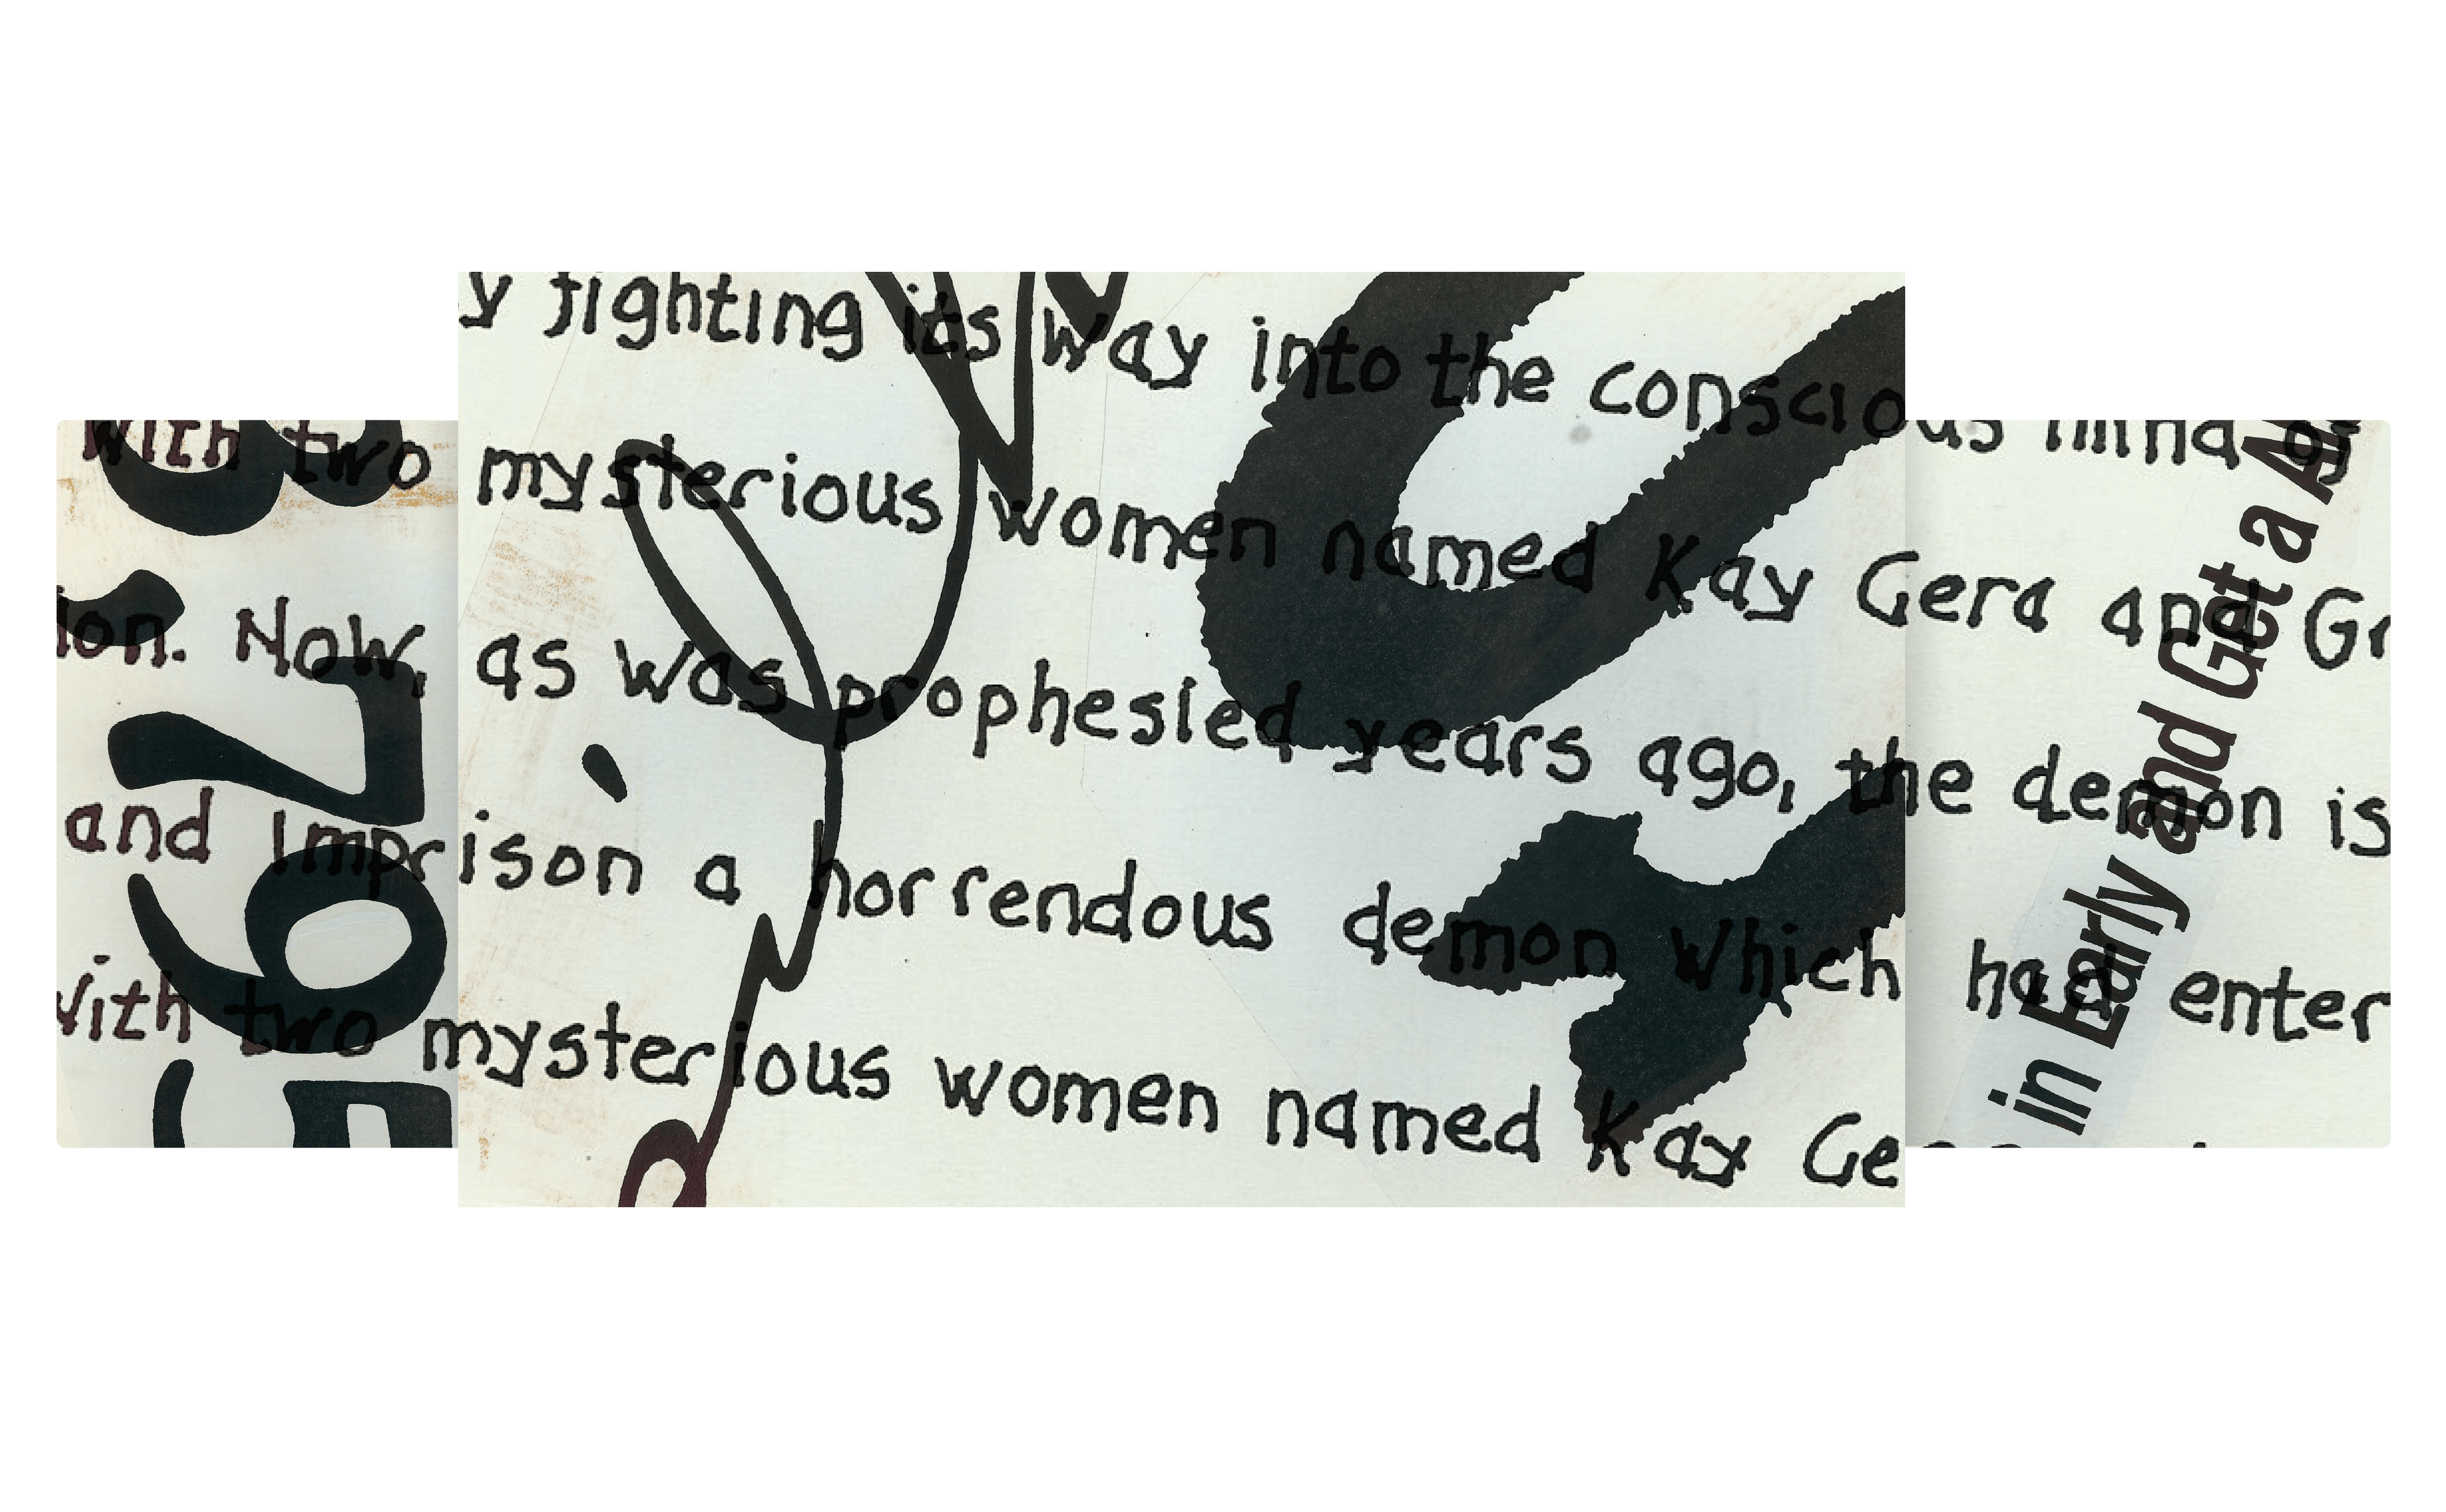 y fighting its way into the conscious mind of
with two mysterious women named Kay Gera and Gr
ion. Now, as was prophesied years ago, the demon is
and imprison a horrendous demon which had enter
with two mysterious women named Kay Ge
in Early and Get a
7
6